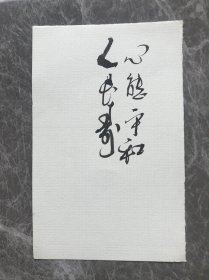 心能平和
人长寿